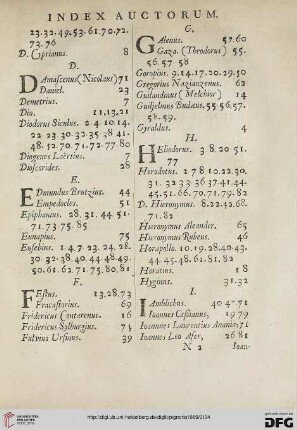 INDEX AUCTORUM.
23. 32. 49. 53. 61. 70. 72.
73. 76
D. Cyprianus. 8
D.
Damascenus (Nicolaus) 71
Daniel. 23
Demetrius. 7
Dio. 11. 13. 21
Diodorus Siculus. 2. 4. 10. 14.
22. 23. 30. 32. 35. 38. 41.
48. 52. 70. 71. 72. 77. 80
Diogenes Laërtius. 7
Dioscorides. 28
E.
Edmundus Brutzius. 44
Empedocles. 51
Epiphanius. 28. 31. 44. 51.
71. 73. 75. 85
Eunapius. 75
Eusebius. 1. 4. 7. 23. 24. 28.
30. 32. 38. 40. 44. 48. 49.
50. 61. 62. 71. 75. 80. 81
F.
Festus. 13. 28. 73
Fracastorius. 69
Fridericus Contarenus. 16
Fridericus Sylburgius. 74
Fulvius Ursinus. 39
G.
Galenus. 57. 60
Gaza. (Theodorus) 55.
56. 57. 58
Goropius. 9. 14. 17. 20. 29. 50
Gregorius Nazianzenus. 62
Guilandinus (Melchior) 14
Guilielmus Budæus. 55. 56. 57.
58. 59.
Gyraldus. 4
H.
Heliodorus. 3. 8. 20. 51.
77
Herodotus. 1. 7. 8. 10. 22. 30.
31. 32. 33. 36. 37. 41. 44.
45. 51. 66. 70. 71. 79. 82
D. Hieronymus. 8. 22. 42. 68.
71. 82
Hieronymus Aleander. 65
Hieronymus Rubeus. 46
Horapollo. 10. 19. 28. 40. 43.
44. 45. 48. 61. 81. 82
Horatius. 18
Hyginus. 31. 32
I.
Iamblichus. 40. 47. 71
Ioannes Casianus, 19. 79
Ioannes Laurentius Ananias 71
Ioannes Leo Afer, 26. 81
N 2 Ioan-
http://digi.ub.uni-heidelberg.de/diglit/pignoria1669/0124
DFG